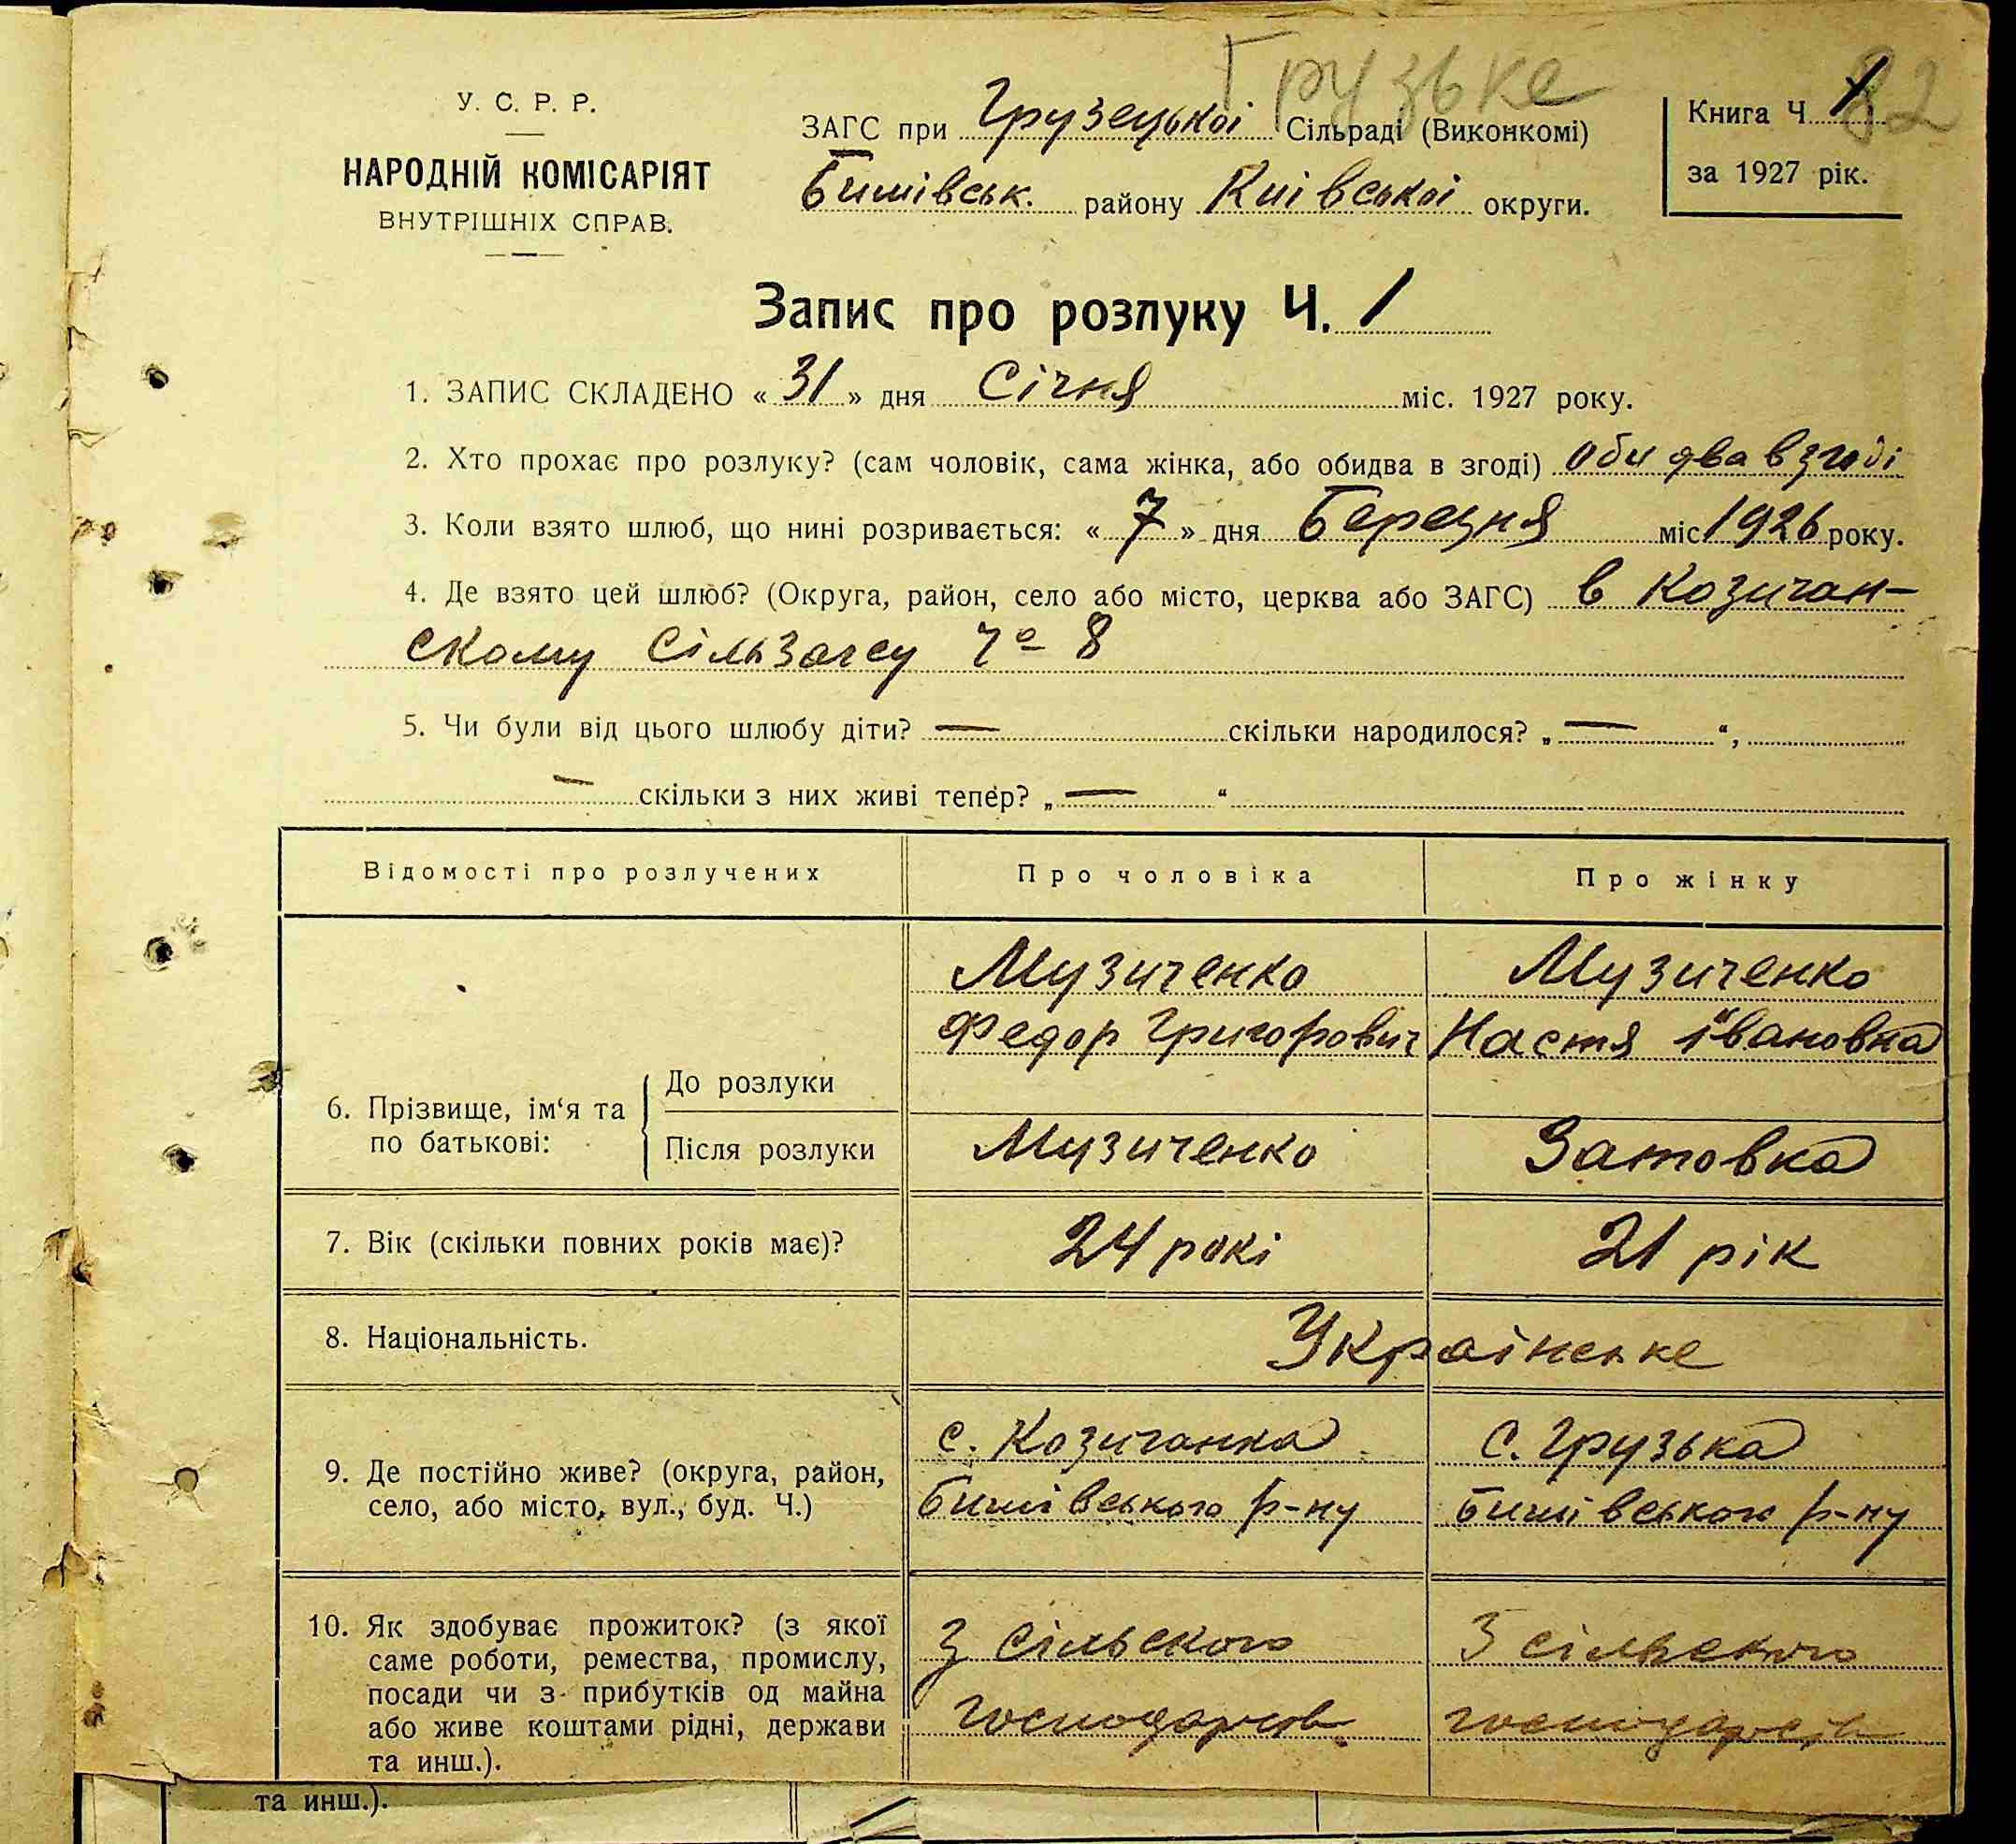 Грузьке
82
У. С. Р. Р.
НАРОДНІЙ КОМІСАРІЯТ
ВНУТРІШНІХ СПРАВ.
ЗАГС при Грузецької Сільраді (Виконкомі)
Бишівськ. району Київської округи.
Книга Ч 1
за 1927 рік.
Запис про розлуку Ч. 1
1. ЗАПИС СКЛАДЕНО « 31 » дня Січня міс. 1927 року.
2. Хто прохає про розлуку? (сам чоловік, сама жінка, або обидва в згоді) обидва в згоді
3. Коли взято шлюб, що нині розривається: « 7 » дня Березня міс 1926 року.
4. Де взято цей шлюб? (Округа, район, село або місто, церква або ЗАГС) в Козичан-
скому Сільзагсу Ч° 8
5. Чи були від цього шлюбу діти? — скільки народилося? „ — “,
— скільки з них живі тепер? „ — “
Відомості про розлучених
Про чоловіка
Про жінку
6. Прізвище, ім‘я та
по батькові:
До розлуки
Музиченко
Федор Григорович
Музиченко
Настя Івановна
Після розлуки
Музиченко
Затовка
7. Вік (скільки повних років має)?
24 рокі
21 рік
8. Національність.
Українське
9. Де постійно живе? (округа, район,
село, або місто, вул., буд. Ч.)
с. Козичанка
Бишівського р-ну
С. Грузька
Бишівського р-ну
10. Як здобуває прожиток? (з якої
саме роботи, ремества, промислу,
посади чи з прибутків од майна
або живе коштами рідні, держави
та инш.).
З сільского
господарств
З сільского
господарств
та инш.).